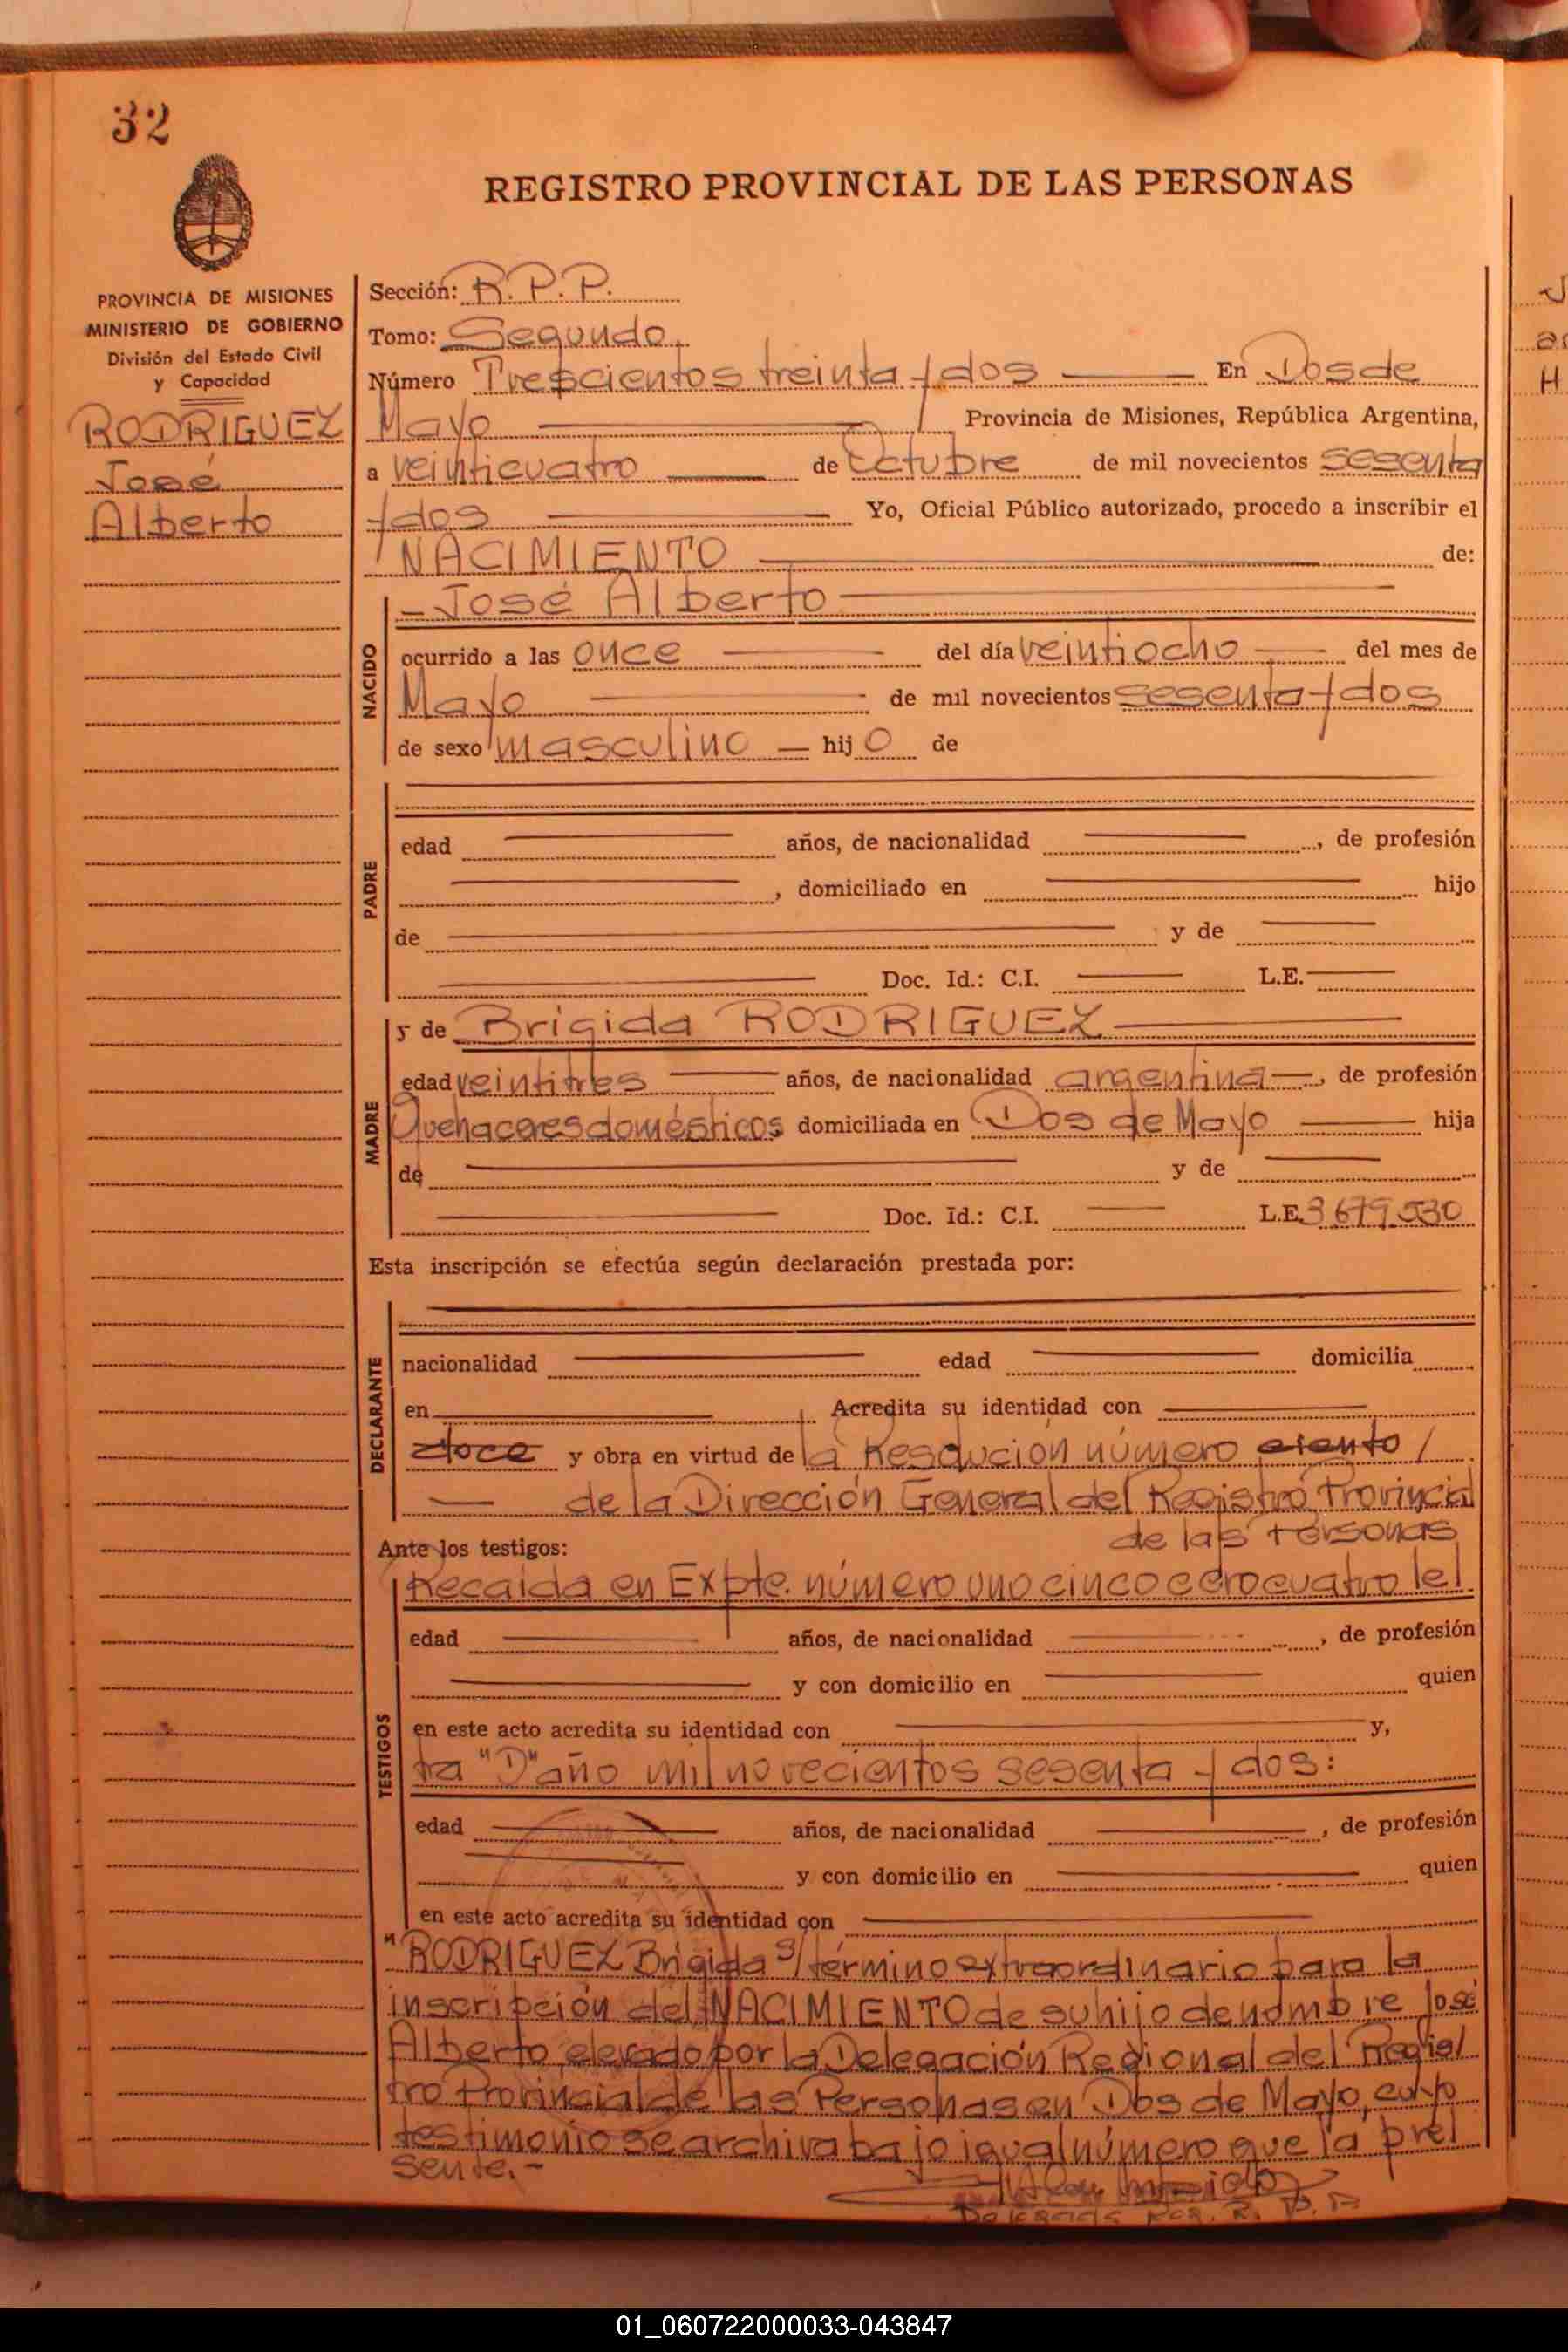 32
REGISTRO PROVINCIAL DE LAS PERSONAS
PROVINCIA DE MISIONES
MINISTERIO DE GOBIERNO
División del Estado Civil
y Capacidad
RODRIGUEZ
José
Alberto
Sección: R.P.P.
Tomo: Segundo
Número Trescientos treinta y dos En Dos de
Mayo Provincia de Misiones, República Argentina,
a veinticuatro de Octubre de mil novecientos sesenta
y dos Yo, Oficial Público autorizado, procedo a inscribir el
NACIMIENTO de:
NACIDO
José Alberto
ocurrido a las once del día veintiocho del mes de
Mayo de mil novecientos sesenta y dos
de sexo masculino hijo de
PADRE
edad años, de nacionalidad , de profesión
, domiciliado en hijo
de y de
Doc. Id.: C.I. L.E.
MADRE
y de Brigida RODRIGUEZ
edad veintitres años, de nacionalidad argentina, de profesión
Quehaceres domésticos domiciliada en Dos de Mayo hija
de y de
Doc. Id.: C.I. L.E. 3.679.530
Esta inscripción se efectúa según declaración prestada por:
DECLARANTE
nacionalidad edad domicilia
en Acredita su identidad con
doce y obra en virtud de la Resolución número ciento /
de la Dirección General del Registro Provincial
de las Personas
Ante los testigos:
TESTIGOS
Recaida en Expte. número uno cinco cero cuatro le/
edad años, de nacionalidad , de profesión
y con domicilio en quien
en este acto acredita su identidad con y,
tra "D" año mil novecientos sesenta y dos:
edad años, de nacionalidad , de profesión
y con domicilio en quien
en este acto acredita su identidad con
"RODRIGUEZ Brigida s/término extraordinario para la
inscripción del NACIMIENTO de su hijo de nombre José
Alberto elevado por la Delegación Regional del Regis/
tro Provincial de las Personas en Dos de Mayo, cuyo
testimonio se archiva bajo igual número que la pre/
sente.-
01_060722000033-043847